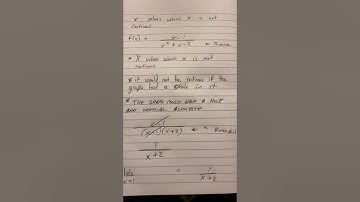 X values where x is not
continous
f(x) = x-1 / x² + x - 2
* X values where x is not
continous
* it would not be continous if the
graph had a hole in it.
* THE GRAPH COULD HAVE A HOLE
AND VERTICAL ASYMPTOTE
x-1 / (x-1)(x+2)
1 / x+2
hole
x=1
= 1 / x+2